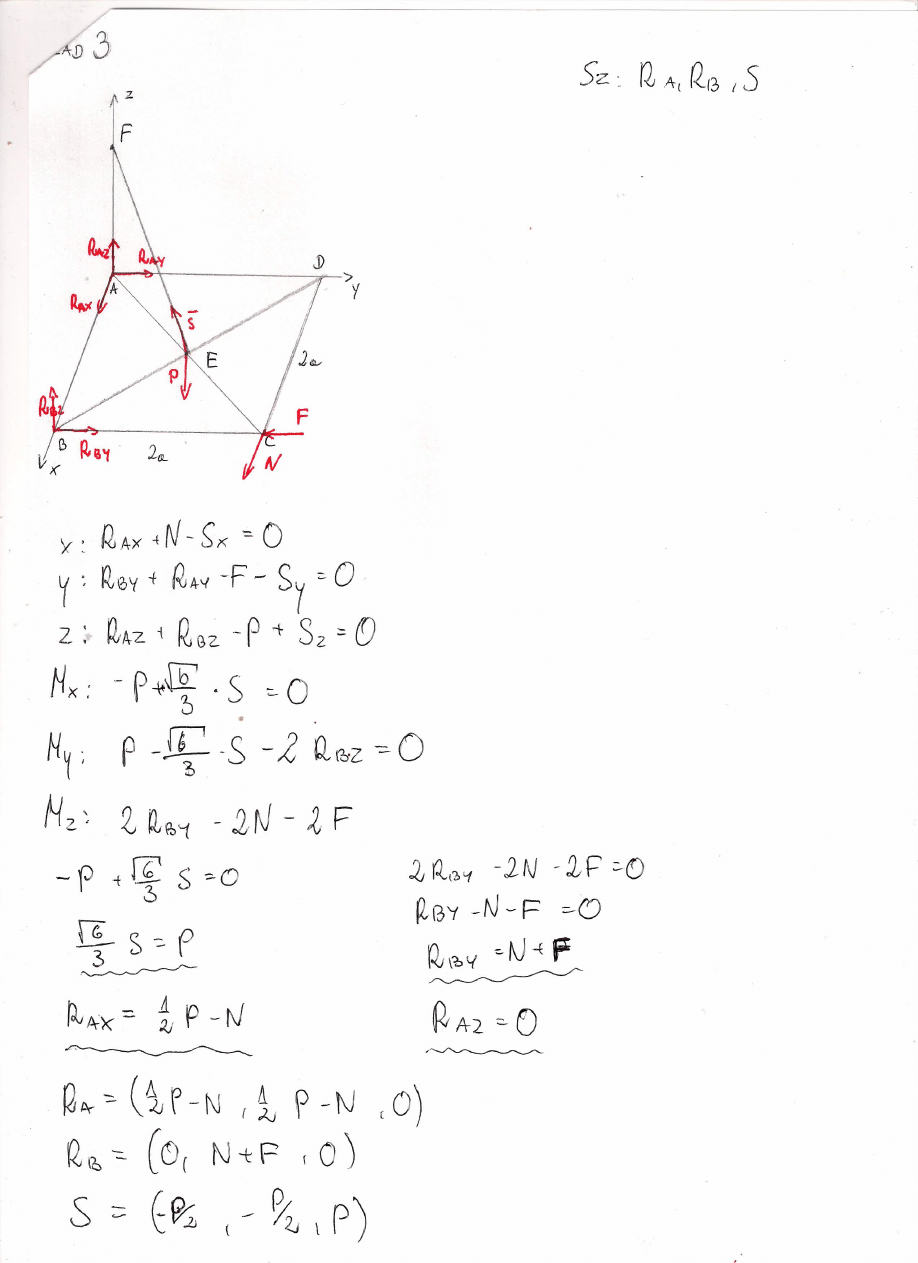 3
Sz: RA, RB, S
z
F
RAZ
RAY
D
y
A
RAX
S̅
E
2a
P
RBZ
F
B
RBY
C
x
2a
N
x: RAX + N - Sx = 0
y: RBY + RAY - F - Sy = 0
z: RAZ + RBZ - P + Sz = 0
Mx: -P + √6/3 · S = 0
My: P - √6/3 · S - 2 RBZ = 0
Mz: 2 RBY - 2N - 2F
-P + √6/3 S = 0
2RBY - 2N - 2F = 0
RBY - N - F = 0
√6/3 S = P
RBY = N + F
RAX = 1/2 P - N
RAZ = 0
RA = (1/2 P - N, 1/2 P - N, 0)
RB = (0, N + F, 0)
S = (-P/2, -P/2, P)